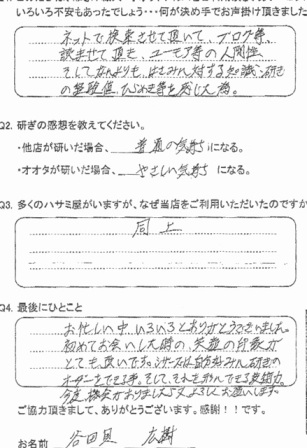 いろいろ不安もあったでしょう・・・何が決め手でお声掛け頂きました
ネットで検索させて頂いて、ブログ等、
読ませて頂き、ユーモア等の人間性
そしてなんよりも、はさみに対する知識・研ぎ
の
等を感じた為。
Q2. 研ぎの感想を教えてください。
・他店が研いだ場合、普通の気持ちになる。
・オオタが研いだ場合、やさしい気持ちになる。
Q3. 多くのハサミ屋がいますが、なぜ当店をご利用いただいたのですか
同上
Q4. 最後にひとこと
お忙しい中、いろいろとありがとうございました。
初めてお会いした時の、笑顔の印象が
とても良いです。
オーダーをできる事。そして、それを形にできる
今度、機会がありましたら又よろしくお願いします。
ご協力頂きまして、ありがとうございます。感謝！！です。
お名前